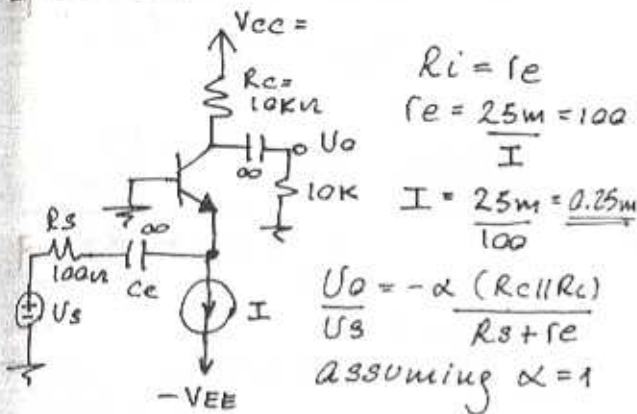 VCC =
RC =
10KΩ
Uo
∞
10K
RS
∞
100Ω
Ce
US
I
-VEE
Ri = re
re = 25m = 100
I
I = 25m = 0.25m
100
Uo = -α (Rc||Rc)
US RS + re
assuming α = 1